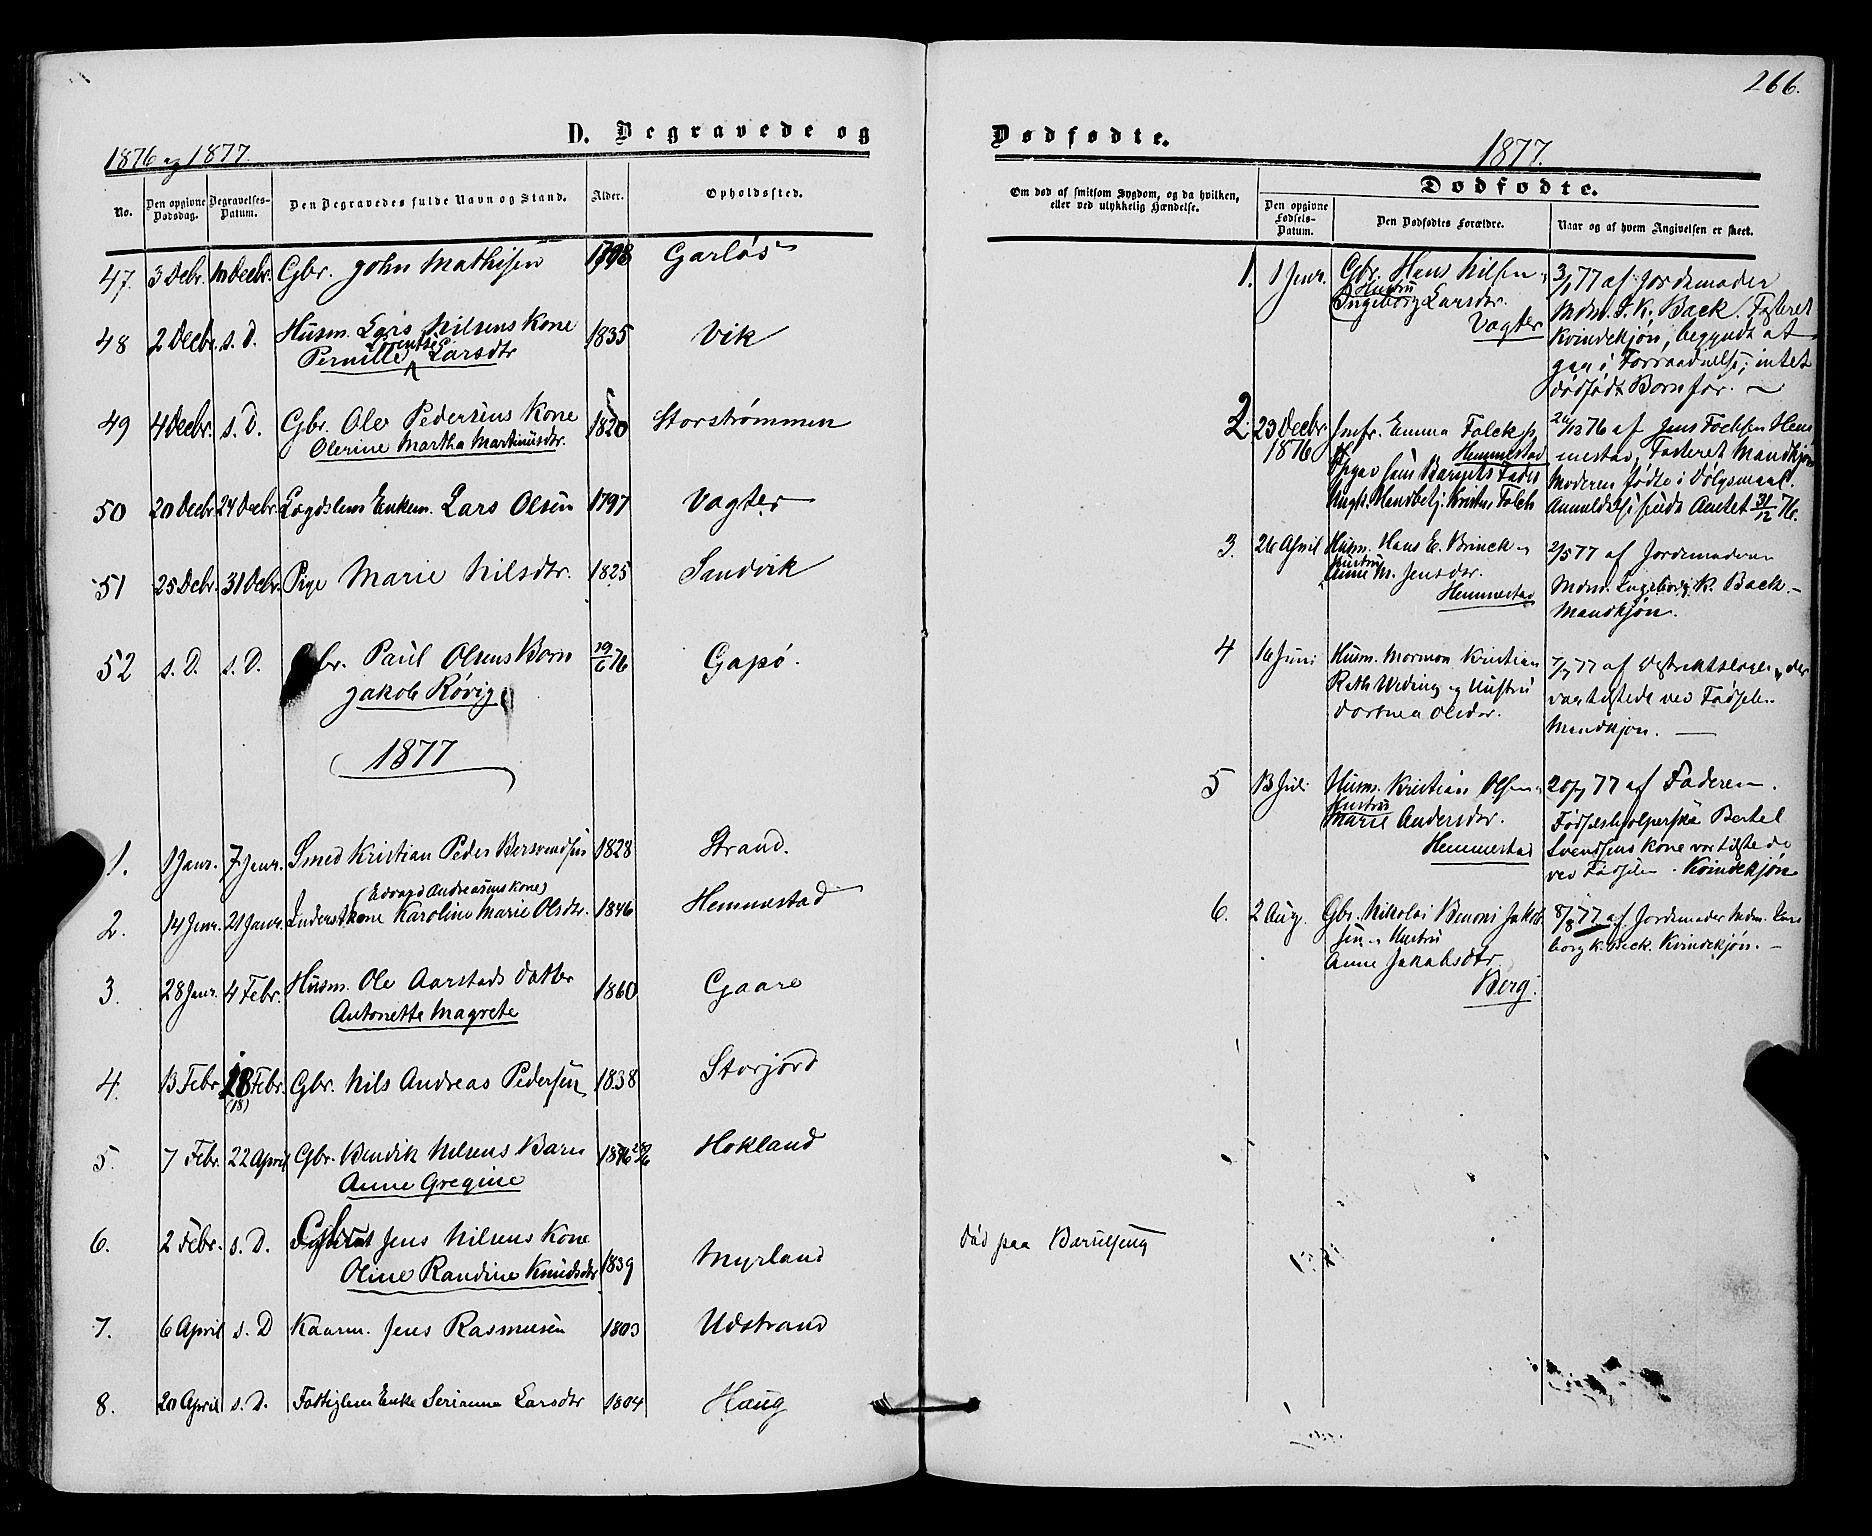 266.
D. Begravede og
Dødfødte.
1876 og 1877.
1877.
No.
Den opgivne Dødsdag.
Begravelses-Datum.
Den Begravedes fulde Navn og Stand.
Alder.
Opholdssted.
Om død af smitsom Sygdom, og da hvilken,
eller ved ulykkelig Hændelse.
Dødfødte.
Den opgivne Fødsels-Datum.
Den Dødfødtes Forældre.
Naar og af hvem Angivelsen er skeet.
47. 3 Decbr. 10 Decbr. Gbr. John Mathisen 1798 Garløs
48 2 Decbr. s. D. Husm. Lars Nilsens Kone 1835 Vik
Lorentse
Pernille Larsdtr
49 4 Decbr. s. D. Gbr. Ole Pedersens Kone 1820 Storstrømmen
Olerine Martha Martinusdtr.
50 20 Decbr. 24 Decbr. Lægdslem Enkem. Lars Olsen 1797 Vagter
51 25 Decbr. 31 Decbr. Pige Marie Nilsdtr. 1825 Sandvik
52 s. D. s. D. Gbr. Paul Olsens Barn 19/6 76 Gapø.
Jakob Røvig
1877
1. 1 Janr. 7 Janr. Smed Kristian Peder Bersvendsen 1828 Strand.
(Edvard Andreasens Kone)
2. 14 Janr. 21 Janr. Inderstkone Karoline Marie Olsdtr. 1846 Hemmestad
3. 28 Janr. 4 Febr. Husm. Ole Aarstads Datter 1860 Gaare
Antonette Magrete
4. 13 Febr. 18 Febr. Gbr. Nils Andreas Pedersen 1838 Storjord
(18)
5. 7 Febr. 22 April Gbr. Bendik Nilsens Barn 1876 Hokland
Anne Gregine
6. 2 Febr. s. D. Jens Nilsens Kone
Oline Randine Knudsdtr 1839 Myrland
Død paa Barselseng
7. 6 April s. D Kaarm. Jens Rasmussen 1803 Udstrand
8. 20 April s. D. Fattiglem Enke Serianna Larsdtr 1804 Haug
1. 1 Janr. Gbr. Hans Nilsen
Hustru
Ingeborg Larsdtr.
Vagter
3/1 77 af Jordemoder
Mdm. I. K. Back. Fosteret
Kvindekjøn, begyndt at
gaa i Forraadnelse; intet
dødfødt Barn før.
2. 23 Decbr 1876 Jmfr. Emma Falck
Hemmestad
Opgav Barnets Fader
Ungk. Handelsbetj. Kristen Falch
26/12 76 af Jens Fochsen Hem
mestad, Fosteret Mandkjøn
Moderen fødte i Dølgsmaal.
Anmeldelse sendt Amtet 31/12 76.
3. 26 April Husm. Hans E. Brinck og
Hustru
Anne M. Jensdtr.
Hemmestad
2/5 77 af Jordemoderen
Mdm. Ingeborg K. Back.
Mandkjøn.
4 16 Juni Husm. Mormon Kristian
Rath Weding og Hustru
Dorthea Olsdtr.
7/7 77 af Distriktslægen, der
var tilstede ved Fødselen
Mandkjøn.
5 13 Juli Husm. Kristian Olsen
Hustru
Marie Andersdtr.
Hemmestad
20/7 77 af Faderen.
Fødselshjælperske Bertel
Svendsens Kone var tilstede
ved Fødselen. Kvindekjøn
6. 2 Aug. Gbr. Nikolai Benoni Jakob
sen og Hustru
Anne Jakobsdtr
Berg.
8/8 77 af Jordemoder Mdm. Inge
borg K. Beck. Kvindekjøn.